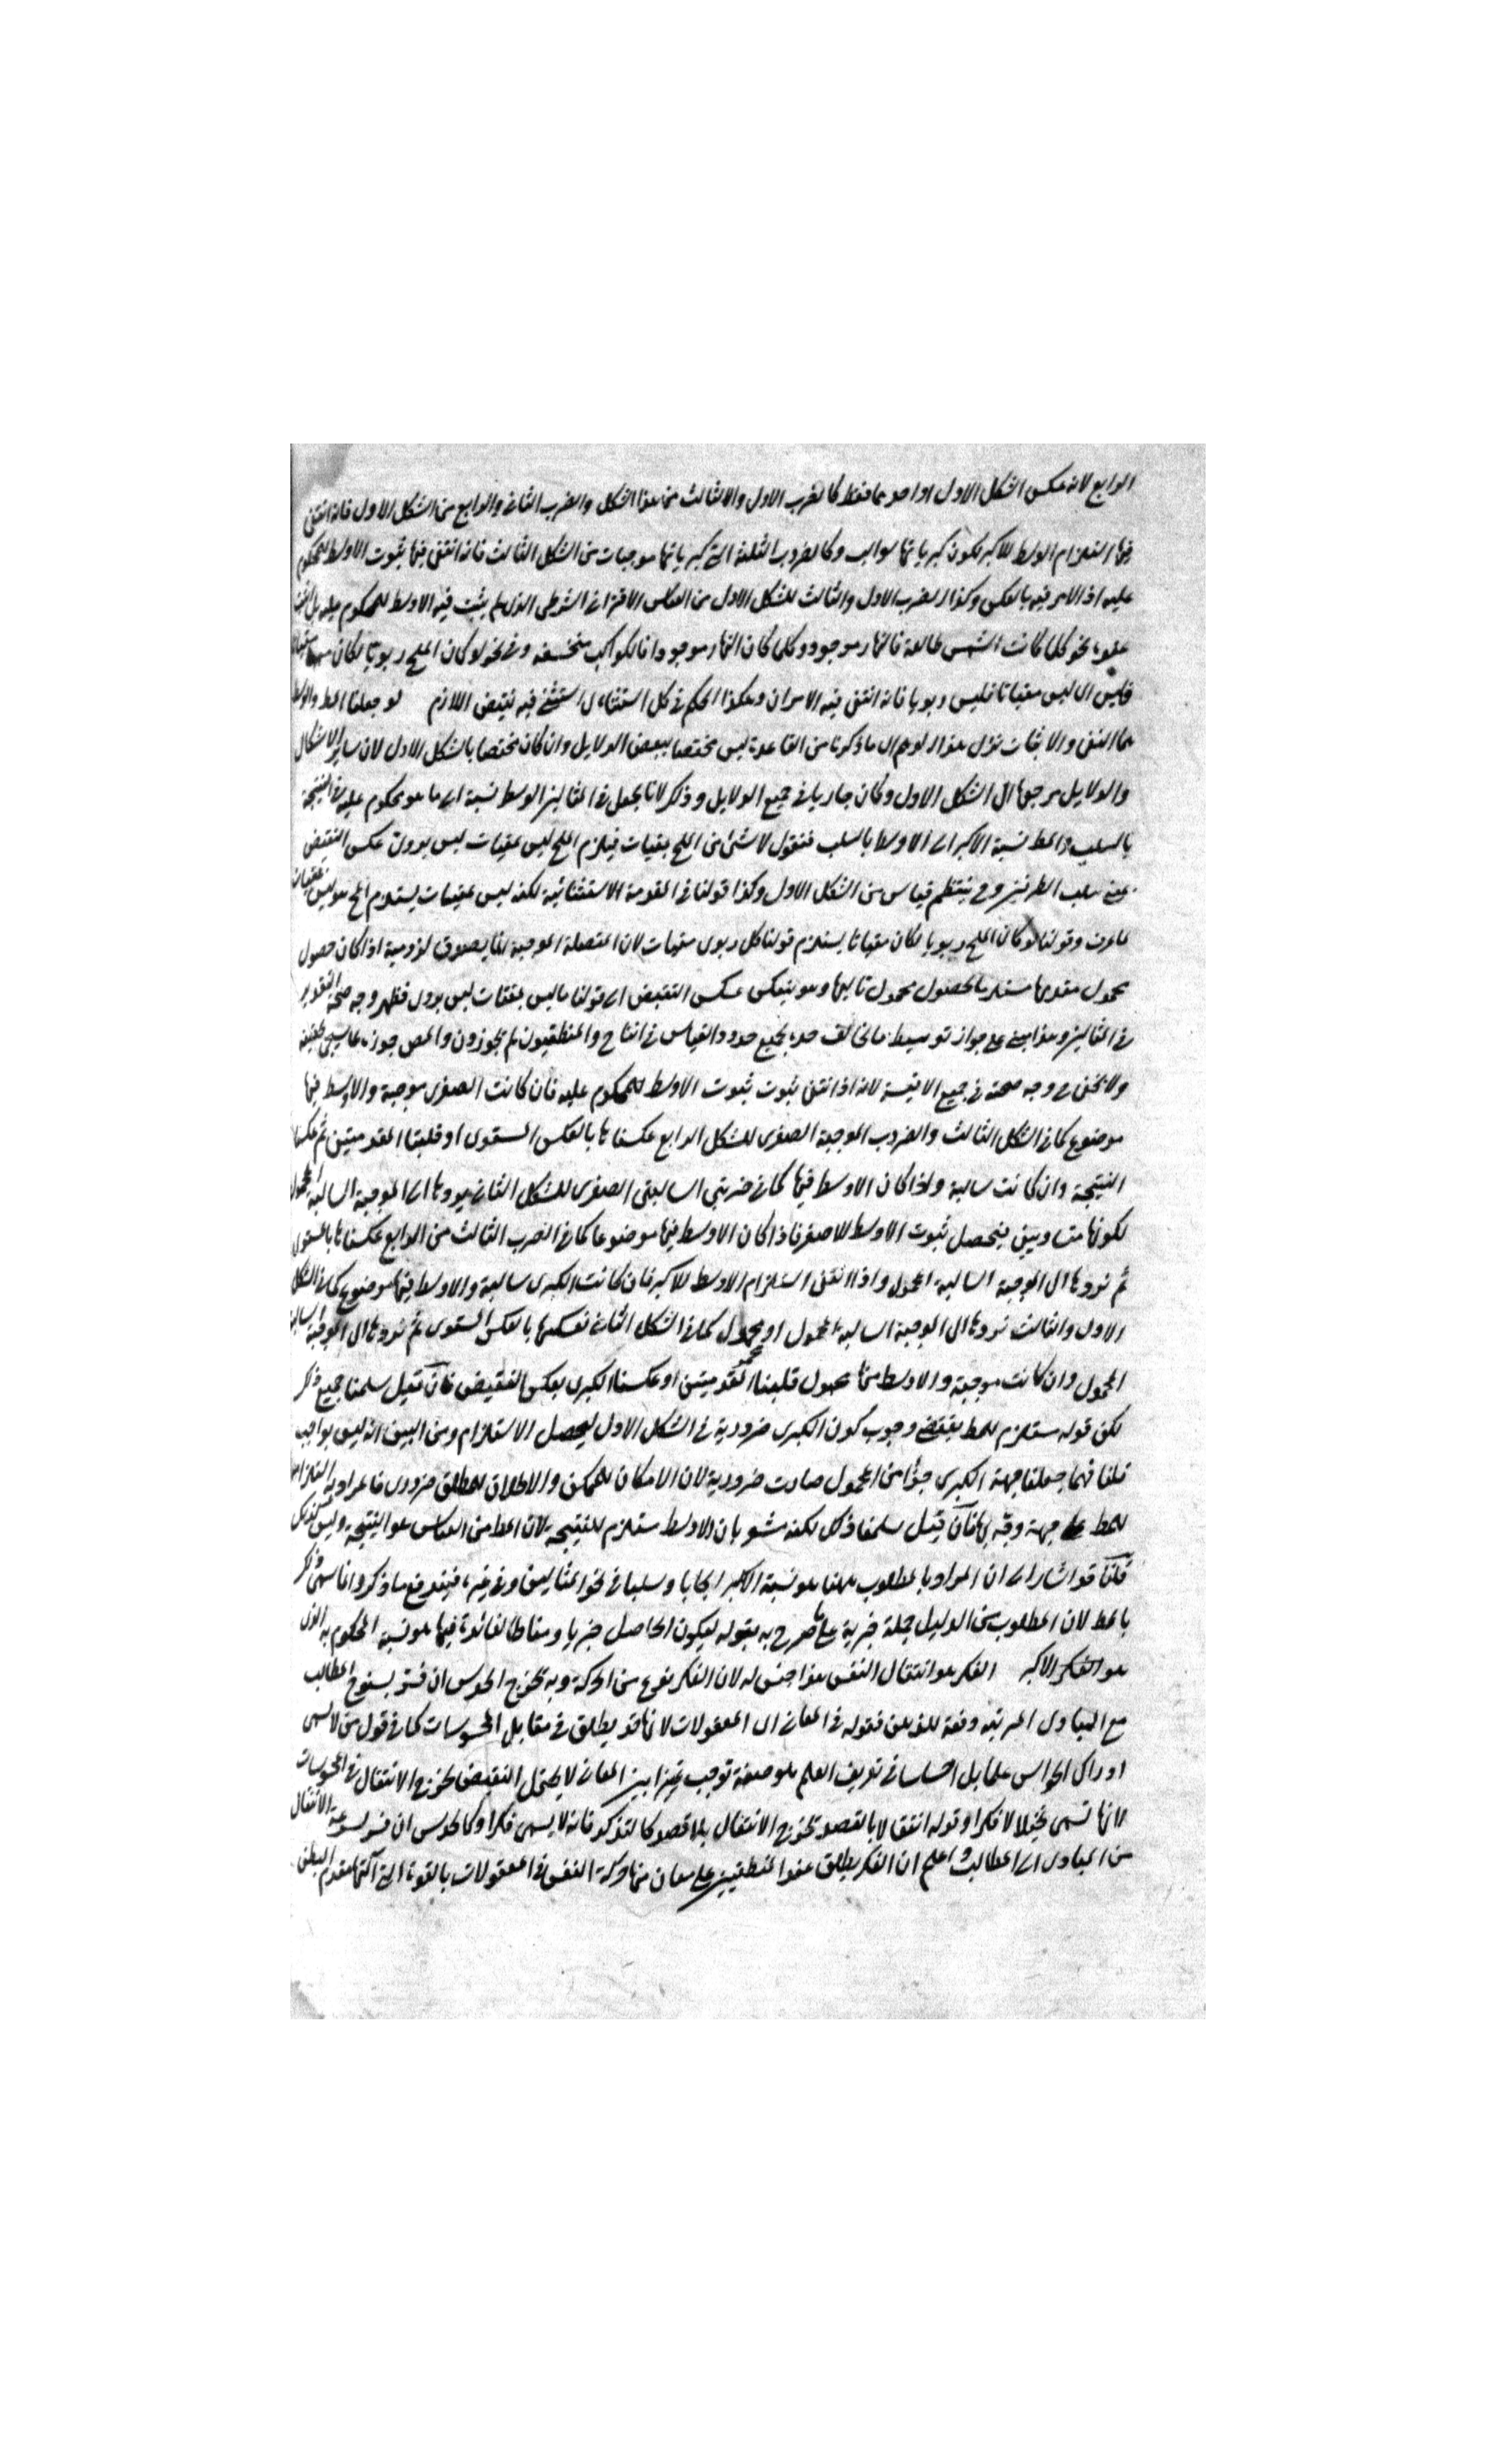 الرابع لانه عكس الشكل الاول او احدهما فقط كالضرب الاول والثالث من هذا الشكل والضرب الثانى والرابع من الشكل الاول فانه انتفى
فيها استلزام الوسط للاكبر لكون كبرياتها سوالب وكالضروب الثلثة التى كبرياتها موجبات من الشكل الثالث فانه انتفى فيها ثبوت الاوسط للمحكوم
عليه اذ الامر فيه بالعكس وكذا الضرب الاول والثالث للشكل الاول من القياس الاقترانى الشرطى الذى لم يثبت فيه الاوسط للمحكوم عليه بل
نحو كلما كانت الشمس طالعة فالنهار موجود وكلما كان النهار موجودا فالكواكب منخسفه وفى نحو لو كان الملح ربويا لكان مقتاتا
فليس اى ليس مقتاتا فليس ربويا فانه انتفى فيه الامران وهكذا الحكم فى كل استثنائى استثنى فيه نقيض اللازم لو جعلنا المط والوسط
هما النفى والاثبات نزل هذا لوهم ان ما ذكرنا من القاعدة ليس مختصا ببعض الدلايل وان كان مختصا بالشكل الاول لان ساير الاشكال
والدلايل مرجعها الى الشكل الاول وكان جاريا فى جميع الدلايل وذكر لانا نجعل فى المثالين الوسط نسبة الى ما هو محكوم عليه فى النتيجة
بالسلب والمط نسبة الاكبر الى الاوسط بالسلب فنقول لا شئ من الملح بمقتات فيلزم الملح ليس بمقتات ليس بربوى عكس النقيض
سلب الطرفين وح ينتظم قياس من الشكل الاول وكذا قولنا فى المقدمة الاستثنائية لكنه ليس بمقتات يستلزم الملح هو ليس بمقتات
لما عرفت وقولنا لو كان الملح ربويا لكان مقتاتا يستلزم قولنا كل ربوى مقتات لان المتصلة الموجبة انما يصدق لزومية اذا كان حصول
محمول مقدمها مستلزما لحصول محمول تاليها وهو ينعكس عكس النقيض الى قولنا ما ليس بمقتات ليس بربوى فظهر وجه صحة التقدير
فى المثالين وهذا مبنى على جواز توسيط ما تخالف حده بجميع حدود القياس فى انتاج والمنطقيون لم يجوزون والمص جوزه على ما سيجئ تحقيقه
ولا يخفى وجه صحته فى جميع الاقيسة لانه اذا انتفى ثبوت ثبوت الاوسط للمحكوم عليه فان كانت الصغرى موجبة والاوسط فيها
موضوع كما فى الشكل الثالث والضروب الموجبة الصغرى للشكل الرابع عكسناها بالعكس المستوى او قلبنا المقدمتين ثم عكسنا
النتيجة وان كانت سالبة واذا كان الاوسط فيها كما فى ضربى السالبتى الصغرى للشكل الثانى يردها الى الموجبة السالبة المحمول
لكونهما متساويتين فيحصل ثبوت الاوسط للاصغر فاذا كان الاوسط فيها موضوعا كما فى الضرب الثالث من الرابع عكسناها بالمستوى
ثم نردها الى الموجبة السالبة المحمول واذا انتفى استلزام الاوسط للاكبر فان كانت الكبرى سالبة والاوسط فيها موضوع كما فى الشكل
الاول والثالث نردها الى الموجبة السالبة المحمول او محمول كما فى الشكل الثانى نعكسها بالعكس المستوى ثم نردها الى الموجبة السالبة
المحمول وان كانت موجبة والاوسط منها محمول قلبنا المقدمتين او عكسنا الكبرى بعكس النقيض فان قيل سلمنا جميع ما ذكر
لكن قوله مستلزم للمط يقتضى وجوب كون الكبرى ضرورية فى الشكل الاول ليحصل الاستلزام ومن البين انه ليس بواجب
قلنا مهما جعلنا جهة الكبرى جزأ من المحمول صارت ضرورية لان الامكان للممكن والاطلاق للمطلق ضرورى فالمراد به استلزامها
للمط على جهة فان قيل سلمنا ذلك لكنه مشعر بان الاوسط مستلزم للنتيجة لان المط من القياس هو النتيجة وليس كذلك
قلنا قد اشار الى ان المراد بالمطلوب ههنا هو نسبة الاكبر ايجابا وسلبا فى نحو المثالين وفى غيره فيندفع ما ذكر وانما سمى ما ذكر
بالمط لان المطلوب من الدليل جملة خبرية على ما صرح به بقوله ليكون الحاصل خبريا ومناط الفائدة فيها هو نسبة المحكوم به الذى
هو الاكبر الفكر هو انتقال النفس هذا جنس له لان الفكر نوع من الحركة وبه تخرج الحدس ان فسر بسنوح المطالب
مع المبادى المرتبه دفعة للذهن فقوله فى المعانى اى المعقولات لانها قد يطلق فى مقابل المحسوسات كما فى قول من لا يسمى
ادراك الحواس علما بل احساسا فى تعريف العلم هو صفة توجب تميزا بين المعانى لا يحتمل النقيض تخرج الانتقال فى المحسوسات
لانها تسمى تخيلا لا فكرا وقوله انتقالا بالقصد تخرج الانتقال بلا قصد كالتذكر فانه لا يسمى فكرا وكالحدس ان فسر بسرعة الانتقال
من المبادى الى المطالب واعلم ان الفكر يطلق عند المنطقيين على معان منها حركة النفس فى المعقولات بالقوة التى آلتها مقدم البطن